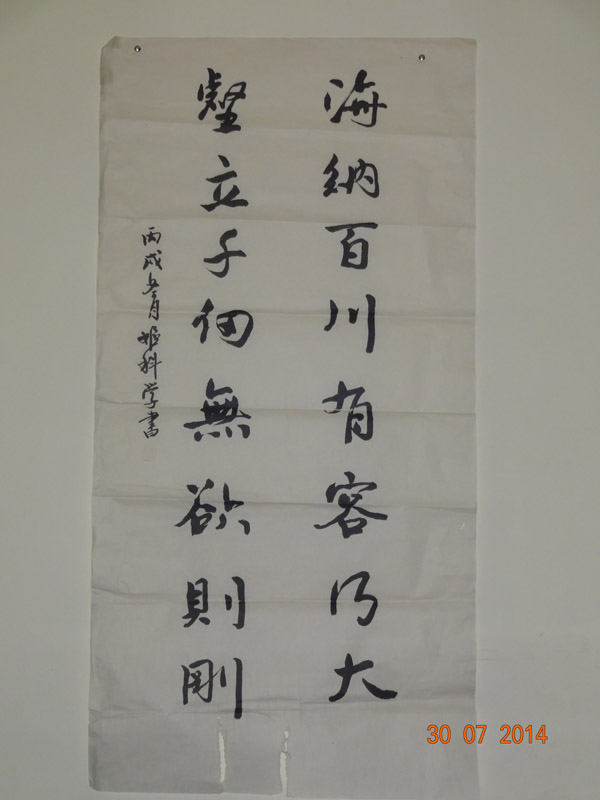 海納百川有容乃大
壑立千仞無欲則剛
丙戌月姬科学書
30 07 2014